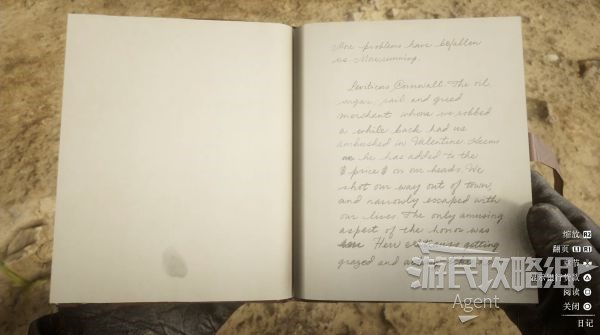 More problems have befallen
us. Moverunning.
Leviticus Cornwall. The oil,
sugar, rail and greed
merchant whom we robbed
a while back had us
ambushed in Valentine. Seems
as he has added to the
$ price $ on our heads. We
shot our way out of town,
and narrowly escaped with
our lives. The only amusing
aspect of the horror was
Herr getting
grazed and
缩放 R2
翻页 L1 R1
阅读
关闭
日记
游民攻略组
Agent